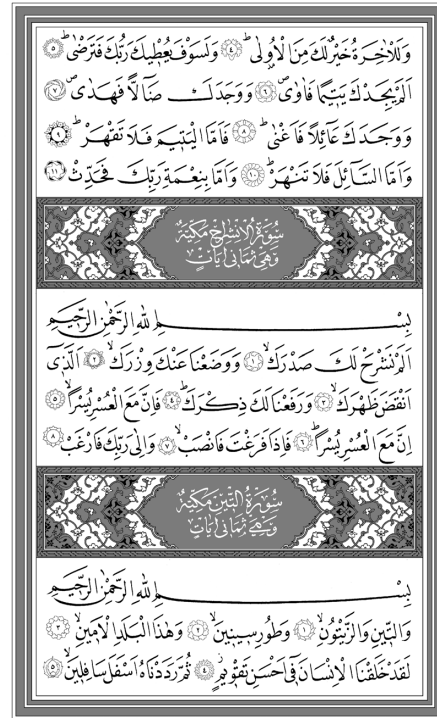 وَلَلْاٰخِرَةُ خَيْرٌ لَكَ مِنَ الْاُو۫لٰىۜ ﴿٤﴾ وَلَسَوْفَ يُعْط۪يكَ رَبُّكَ فَتَرْضٰىۜ ﴿٥﴾
اَلَمْ يَجِدْكَ يَت۪يمًا فَاٰوٰىۖ ﴿٦﴾ وَوَجَدَكَ ضَٓالًّا فَهَدٰىۖ ﴿٧﴾
وَوَجَدَكَ عَٓائِلًا فَاَغْنٰىۜ ﴿٨﴾ فَاَمَّا الْيَت۪يمَ فَلَا تَقْهَرْۜ ﴿٩﴾
وَاَمَّا السَّٓائِلَ فَلَا تَنْهَرْۜ ﴿١٠﴾ وَاَمَّا بِنِعْمَةِ رَبِّكَ فَحَدِّثْ ﴿١١﴾
سُورَةُ الْاِنْشِرَاحِ مَكِّيَّةٌ
وَهِيَ ثَمَانِي اٰيَاتٍ
بِسْمِ اللّٰهِ الرَّحْمٰنِ الرَّح۪يمِ
اَلَمْ نَشْرَحْ لَكَ صَدْرَكَۙ ﴿١﴾ وَوَضَعْنَا عَنْكَ وِزْرَكَۙ ﴿٢﴾ اَلَّذ۪ٓي
اَنْقَضَ ظَهْرَكَۙ ﴿٣﴾ وَرَفَعْنَا لَكَ ذِكْرَكَۜ ﴿٤﴾ فَاِنَّ مَعَ الْعُسْرِ يُسْرًاۙ ﴿٥﴾
اِنَّ مَعَ الْعُسْرِ يُسْرًاۜ ﴿٦﴾ فَاِذَا فَرَغْتَ فَانْصَبْۙ ﴿٧﴾ وَاِلٰى رَبِّكَ فَارْغَبْ ﴿٨﴾
سُورَةُ التّ۪ينِ مَكِّيَّةٌ
وَهِيَ ثَمَانِي اٰيَاتٍ
بِسْمِ اللّٰهِ الرَّحْمٰنِ الرَّح۪يمِ
وَالتّ۪ينِ وَالزَّيْتُونِۙ ﴿١﴾ وَطُورِ س۪ين۪ينَۙ ﴿٢﴾ وَهٰذَا الْبَلَدِ الْاَم۪ينِۙ ﴿٣﴾
لَقَدْ خَلَقْنَا الْاِنْسَانَ ف۪ٓي اَحْسَنِ تَقْو۪يمٍۘ ﴿٤﴾ ثُمَّ رَدَدْنَاهُ اَسْفَلَ سَافِل۪ينَۙ ﴿٥﴾